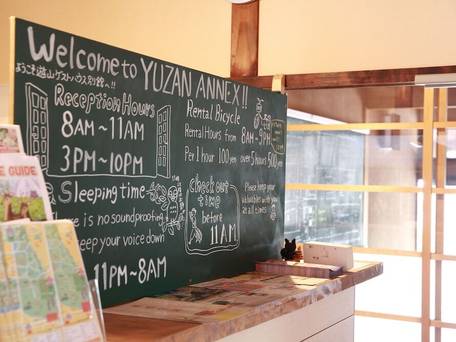 Welcome to YUZAN ANNEX!!
ようこそ遊山ゲストハウス別館へ!!
Reception Hours
8AM~11AM
3PM~10PM
Rental Bicycle
Rental Hours from 8AM~9PM
Per 1 hour 100 yen over 5 hours 500 yen
Sleeping time
is no soundproofing
keep your voice down
11PM~8AM
check out
time
before
11AM
Please keep your
valuables with you
at all times
GUIDE